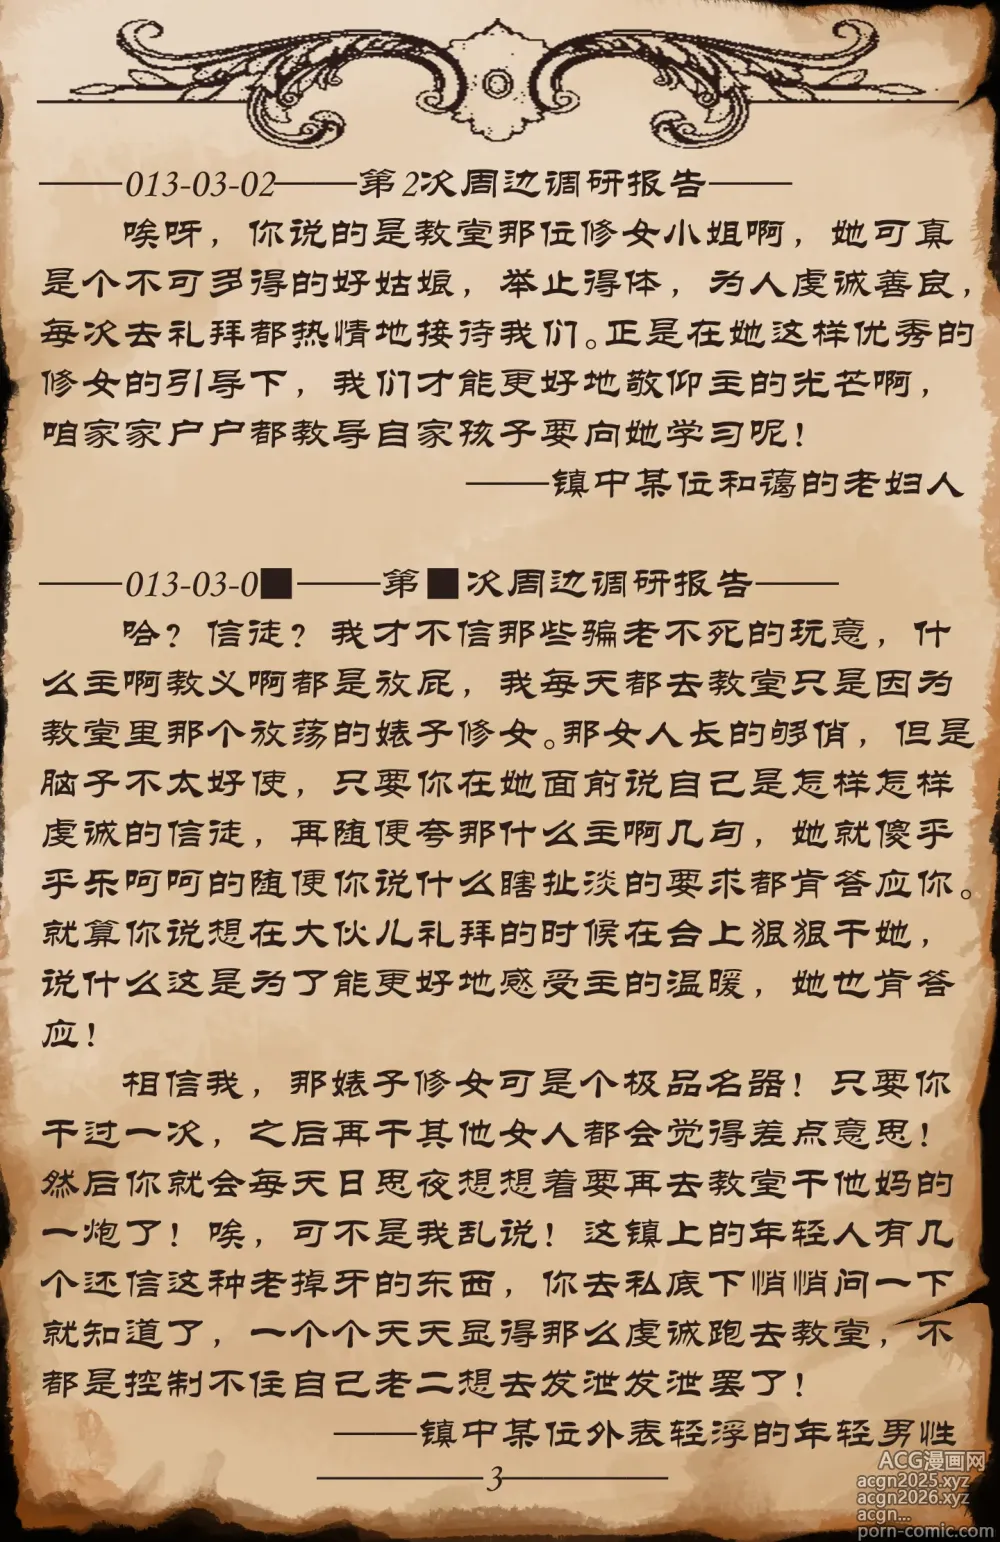 ——013-03-02——第2次周边调研报告——
唉呀，你说的是教堂那位修女小姐啊，她可真
是个不可多得的好姑娘，举止得体，为人虔诚善良，
每次去礼拜都热情地接待我们。正是在她这样优秀的
修女的引导下，我们才能更好地敬仰主的光芒啊，
咱家家户户都教导自家孩子要向她学习呢！
——镇中某位和蔼的老妇人
——013-03-0■——第■次周边调研报告——
哈？信徒？我才不信那些骗老不死的玩意，什
么主啊教义啊都是放屁，我每天都去教堂只是因为
教堂里那个放荡的婊子修女。那女人长的够俏，但是
脑子不太好使，只要你在她面前说自己是怎样怎样
虔诚的信徒，再随便夸那什么主啊几句，她就傻乎
乎乐呵呵的随便你说什么瞎扯淡的要求都肯答应你。
就算你说想在大伙儿礼拜的时候在台上狠狠干她，
说什么这是为了能更好地感受主的温暖，她也肯答
应！
相信我，那婊子修女可是个极品名器！只要你
干过一次，之后再干其他女人都会觉得差点意思！
然后你就会每天日思夜想想着要再去教堂干他妈的
一炮了！唉，可不是我乱说！这镇上的年轻人有几
个还信这种老掉牙的东西，你去私底下悄悄问一下
就知道了，一个个天天显得那么虔诚跑去教堂，不
都是控制不住自己老二想去发泄发泄罢了！
——镇中某位外表轻浮的年轻男性
3
ACG漫画网
acgn2025.xyz
acgn2026.xyz
acgn...
porn-comic.com